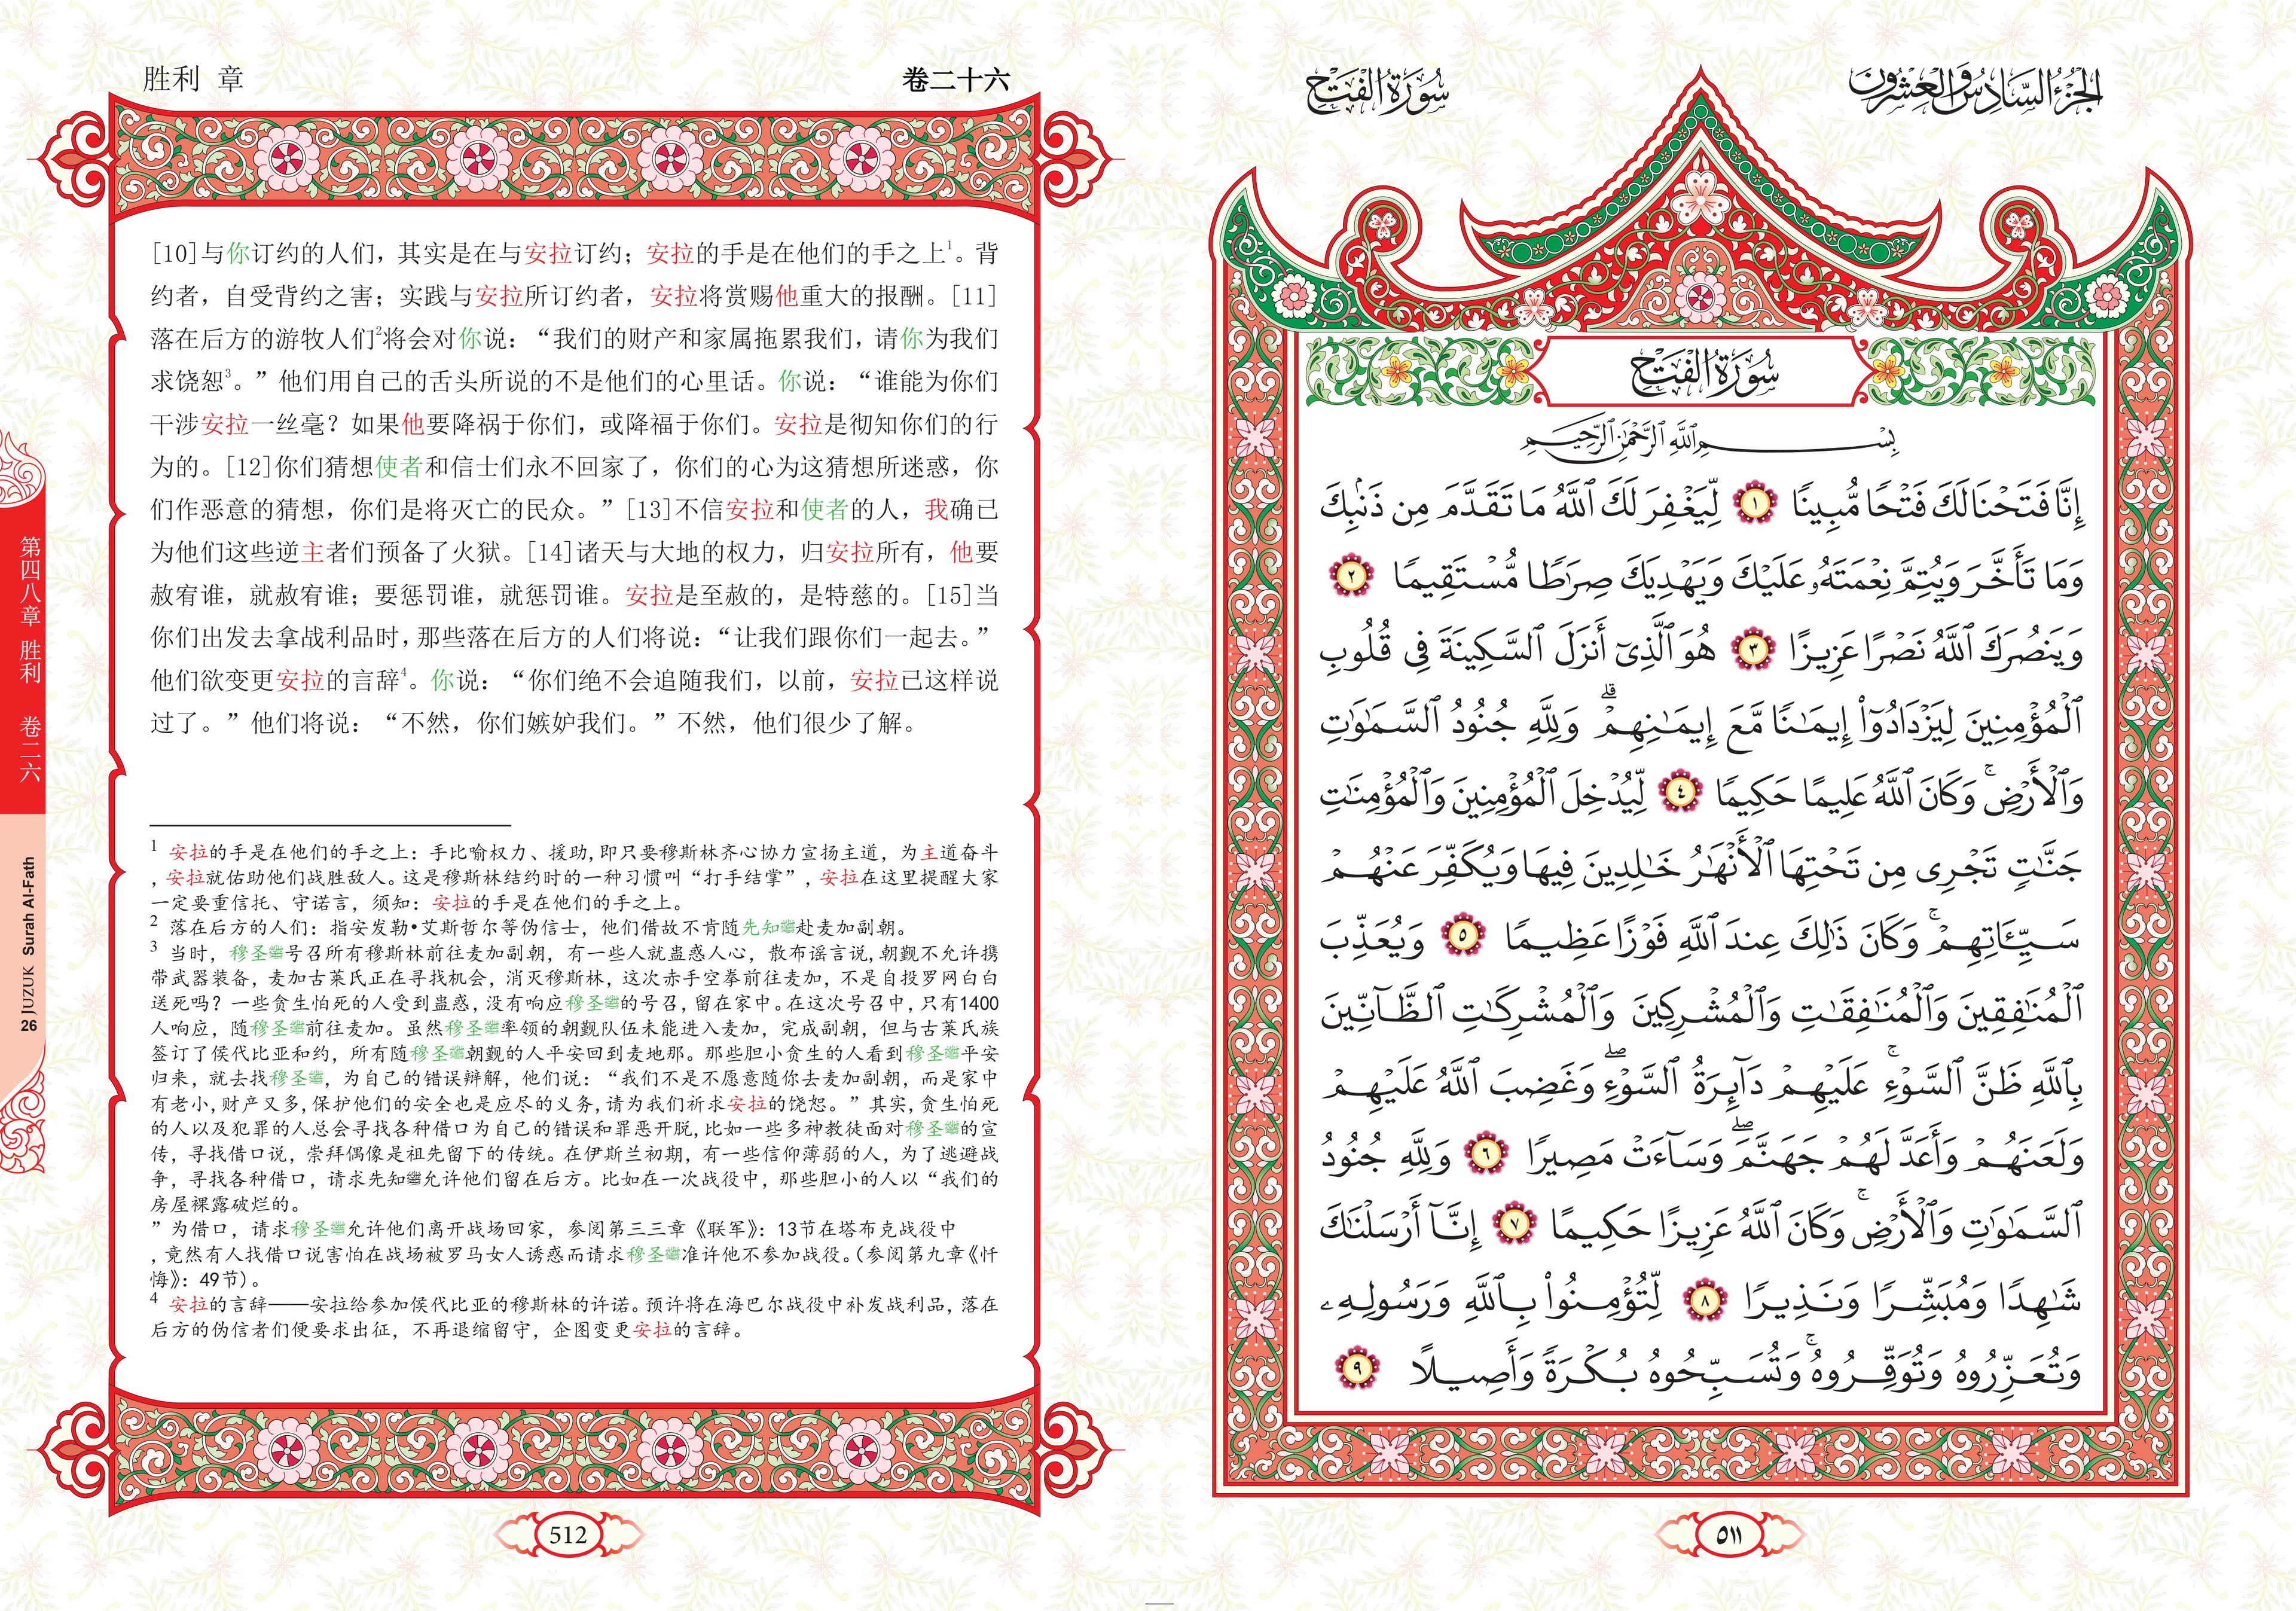 胜利 章
卷二十六
[10]与你订约的人们，其实是在与安拉订约；安拉的手是在他们的手之上¹。背
约者，自受背约之害；实践与安拉所订约者，安拉将赏赐他重大的报酬。[11]
落在后方的游牧人们²将会对你说：“我们的财产和家属拖累我们，请你为我们
求饶恕³。”他们用自己的舌头所说的不是他们的心里话。你说：“谁能为你们
干涉安拉一丝毫？如果他要降祸于你们，或降福于你们。安拉是彻知你们的行
为的。[12]你们猜想使者和信士们永不回家了，你们的心为这猜想所迷惑，你
们作恶意的猜想，你们是将灭亡的民众。”[13]不信安拉和使者的人，我确已
为他们这些逆主者们预备了火狱。[14]诸天与大地的权力，归安拉所有，他要
赦宥谁，就赦宥谁；要惩罚谁，就惩罚谁。安拉是至赦的，是特慈的。[15]当
你们出发去拿战利品时，那些落在后方的人们将说：“让我们跟你们一起去。”
他们欲变更安拉的言辞⁴。你说：“你们绝不会追随我们，以前，安拉已这样说
过了。”他们将说：“不然，你们嫉妒我们。”不然，他们很少了解。
¹ 安拉的手是在他们的手之上：手比喻权力、援助，即只要穆斯林齐心协力宣扬主道，为主道奋斗
，安拉就佑助他们战胜敌人。这是穆斯林结约时的一种习惯叫“打手结掌”，安拉在这里提醒大家
一定要重信托、守诺言，须知：安拉的手是在他们的手之上。
² 落在后方的人们：指安发勒•艾斯哲尔等伪信士，他们借故不肯随先知ﷺ赴麦加副朝。
³ 当时，穆圣ﷺ号召所有穆斯林前往麦加副朝，有一些人就蛊惑人心，散布谣言说，朝觐不允许携
带武器装备，麦加古莱氏正在寻找机会，消灭穆斯林，这次赤手空拳前往麦加，不是自投罗网白白
送死吗？一些贪生怕死的人受到蛊惑，没有响应穆圣ﷺ的号召，留在家中。在这次号召中，只有1400
人响应，随穆圣ﷺ前往麦加。虽然穆圣ﷺ率领的朝觐队伍未能进入麦加，完成副朝，但与古莱氏族
签订了侯代比亚和约，所有随穆圣ﷺ朝觐的人平安回到麦地那。那些胆小贪生的人看到穆圣ﷺ平安
归来，就去找穆圣ﷺ，为自己的错误辩解，他们说：“我们不是不愿意随你去麦加副朝，而是家中
有老小，财产又多，保护他们的安全也是应尽的义务，请为我们祈求安拉的饶恕。”其实，贪生怕死
的人以及犯罪的人总会寻找各种借口为自己的错误和罪恶开脱，比如一些多神教徒面对穆圣ﷺ的宣
传，寻找借口说，崇拜偶像是祖先留下的传统。在伊斯兰初期，有一些信仰薄弱的人，为了逃避战
争，寻找各种借口，请求先知ﷺ允许他们留在后方。比如在一次战役中，那些胆小的人以“我们的
房屋裸露破烂的。
”为借口，请求穆圣ﷺ允许他们离开战场回家，参阅第三三章《联军》：13节在塔布克战役中
，竟然有人找借口说害怕在战场被罗马女人诱惑而请求穆圣ﷺ准许他不参加战役。（参阅第九章《忏
悔》：49节）。
⁴ 安拉的言辞——安拉给参加侯代比亚的穆斯林的许诺。预许将在海巴尔战役中补发战利品，落在
后方的伪信者们便要求出征，不再退缩留守，企图变更安拉的言辞。
512
第四八章 胜利 卷二六
Surah Al-Fath
JUZUK
26
الجزء السادس والعشرون
سورة الفتح
سورة الفتح
بِسْمِ ٱللَّهِ ٱلرَّحْمَٰنِ ٱلرَّحِيمِ
إِنَّا فَتَحْنَا لَكَ فَتْحًا مُّبِينًا ١ لِّيَغْفِرَ لَكَ ٱللَّهُ مَا تَقَدَّمَ مِن ذَنۢبِكَ
وَمَا تَأَخَّرَ وَيُتِمَّ نِعْمَتَهُۥ عَلَيْكَ وَيَهْدِيَكَ صِرَٰطًا مُّسْتَقِيمًا ٢
وَيَنصُرَكَ ٱللَّهُ نَصْرًا عَزِيزًا ٣ هُوَ ٱلَّذِىٓ أَنزَلَ ٱلسَّكِينَةَ فِى قُلُوبِ
ٱلْمُؤْمِنِينَ لِيَزْدَادُوٓا۟ إِيمَٰنًا مَّعَ إِيمَٰنِهِمْ ۗ وَلِلَّهِ جُنُودُ ٱلسَّمَٰوَٰتِ
وَٱلْأَرْضِ ۚ وَكَانَ ٱللَّهُ عَلِيمًا حَكِيمًا ٤ لِّيُدْخِلَ ٱلْمُؤْمِنِينَ وَٱلْمُؤْمِنَٰتِ
جَنَّٰتٍ تَجْرِى مِن تَحْتِهَا ٱلْأَنْهَٰرُ خَٰلِدِينَ فِيهَا وَيُكَفِّرَ عَنْهُمْ
سَيِّـَٔاتِهِمْ ۚ وَكَانَ ذَٰلِكَ عِندَ ٱللَّهِ فَوْزًا عَظِيمًا ٥ وَيُعَذِّبَ
ٱلْمُنَٰفِقِينَ وَٱلْمُنَٰفِقَٰتِ وَٱلْمُشْرِكِينَ وَٱلْمُشْرِكَٰتِ ٱلظَّآنِّينَ
بِٱللَّهِ ظَنَّ ٱلسَّوْءِ ۚ عَلَيْهِمْ دَآئِرَةُ ٱلسَّوْءِ ۖ وَغَضِبَ ٱللَّهُ عَلَيْهِمْ
وَلَعَنَهُمْ وَأَعَدَّ لَهُمْ جَهَنَّمَ ۖ وَسَآءَتْ مَصِيرًا ٦ وَلِلَّهِ جُنُودُ
ٱلسَّمَٰوَٰتِ وَٱلْأَرْضِ ۚ وَكَانَ ٱللَّهُ عَزِيزًا حَكِيمًا ٧ إِنَّآ أَرْسَلْنَٰكَ
شَٰهِدًا وَمُبَشِّرًا وَنَذِيرًا ٨ لِّتُؤْمِنُوا۟ بِٱللَّهِ وَرَسُولِهِۦ
وَتُعَزِّرُوهُ وَتُوَقِّرُوهُ ۚ وَتُسَبِّحُوهُ بُكْرَةً وَأَصِيلًا ٩
٥١١